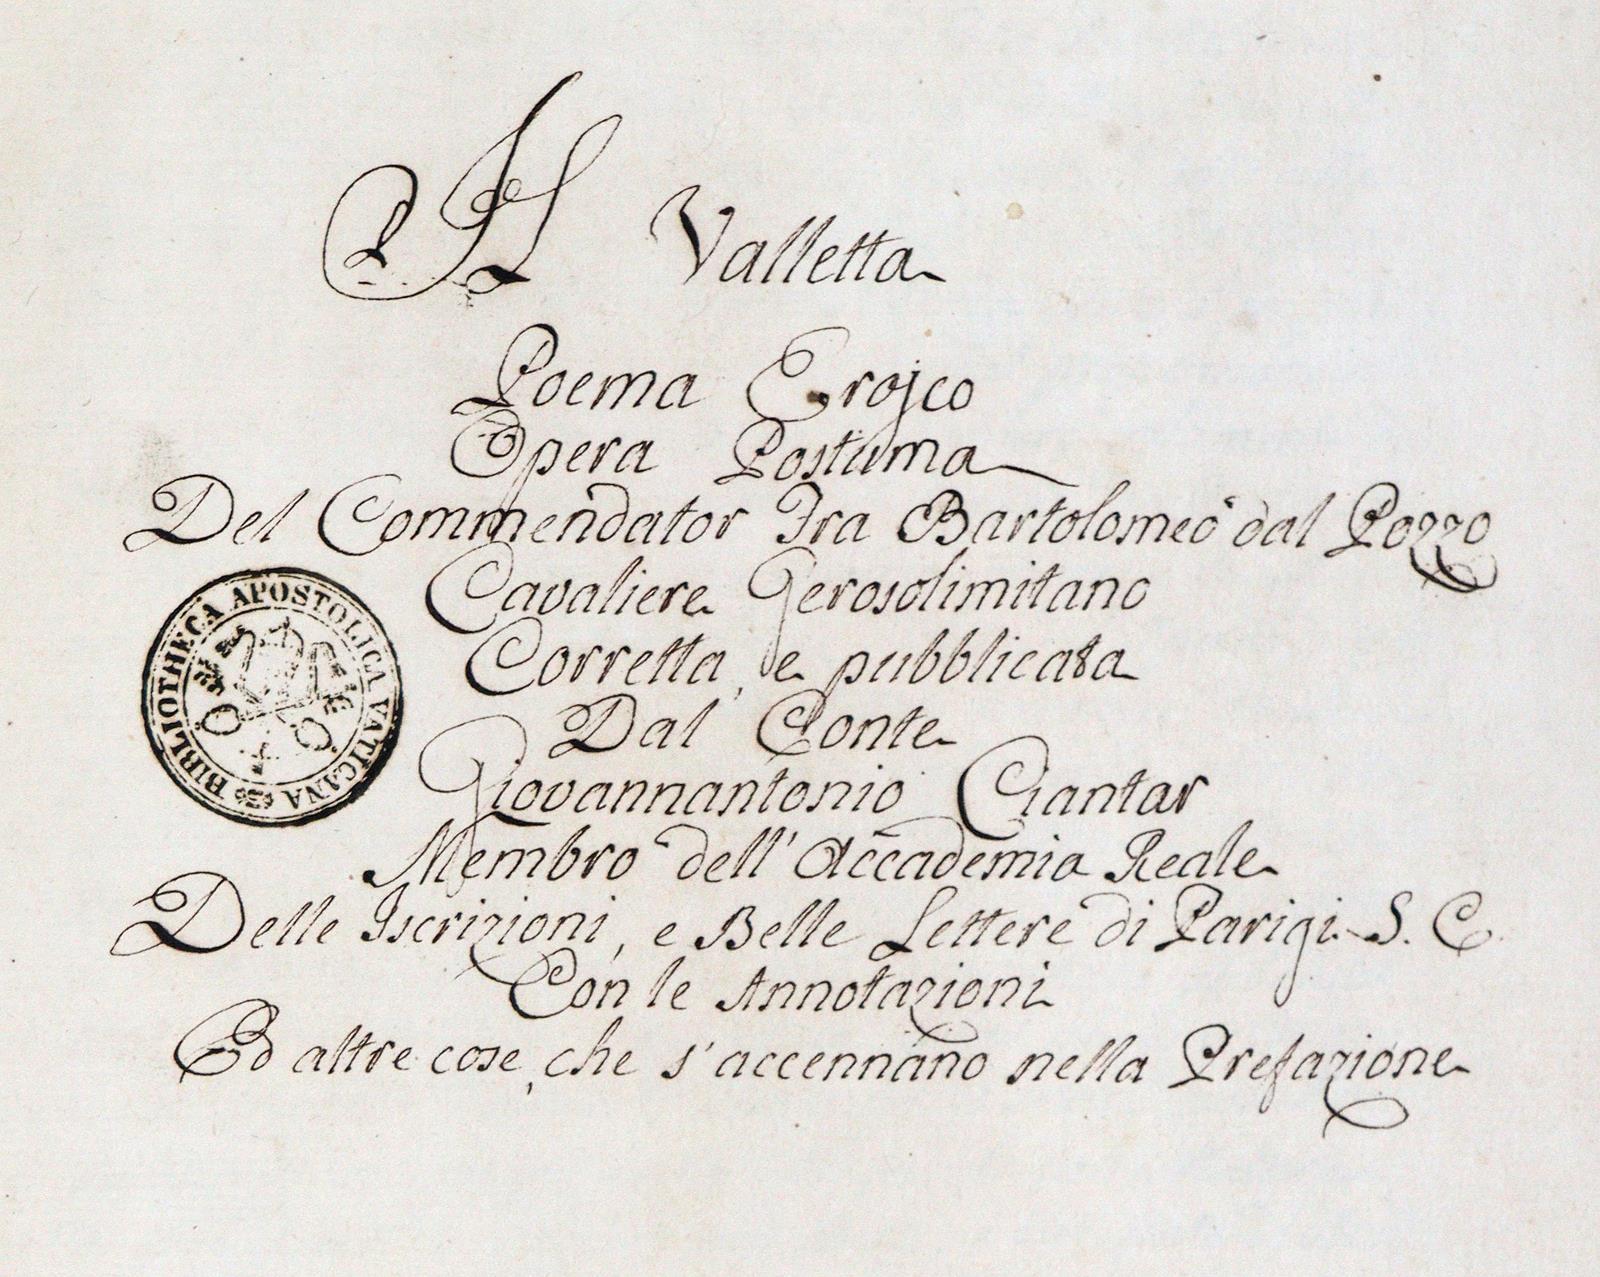 Il Valletta
Poema Erojco
Opera Postuma
Del Commendator Fra Bartolomeo dal Pozzo
Cavaliere Gerosolimitano
Corretta, e pubblicata
Dal Conte
Giovannantonio Ciantar
Membro dell' Accademia Reale
Delle Iscrizioni, e Belle Lettere di Parigi S. C.
Con le Annotazioni
Ed altre cose, che s'accennano nella Prefazione
BIBLIOTHECA APOSTOLICA VATICANA